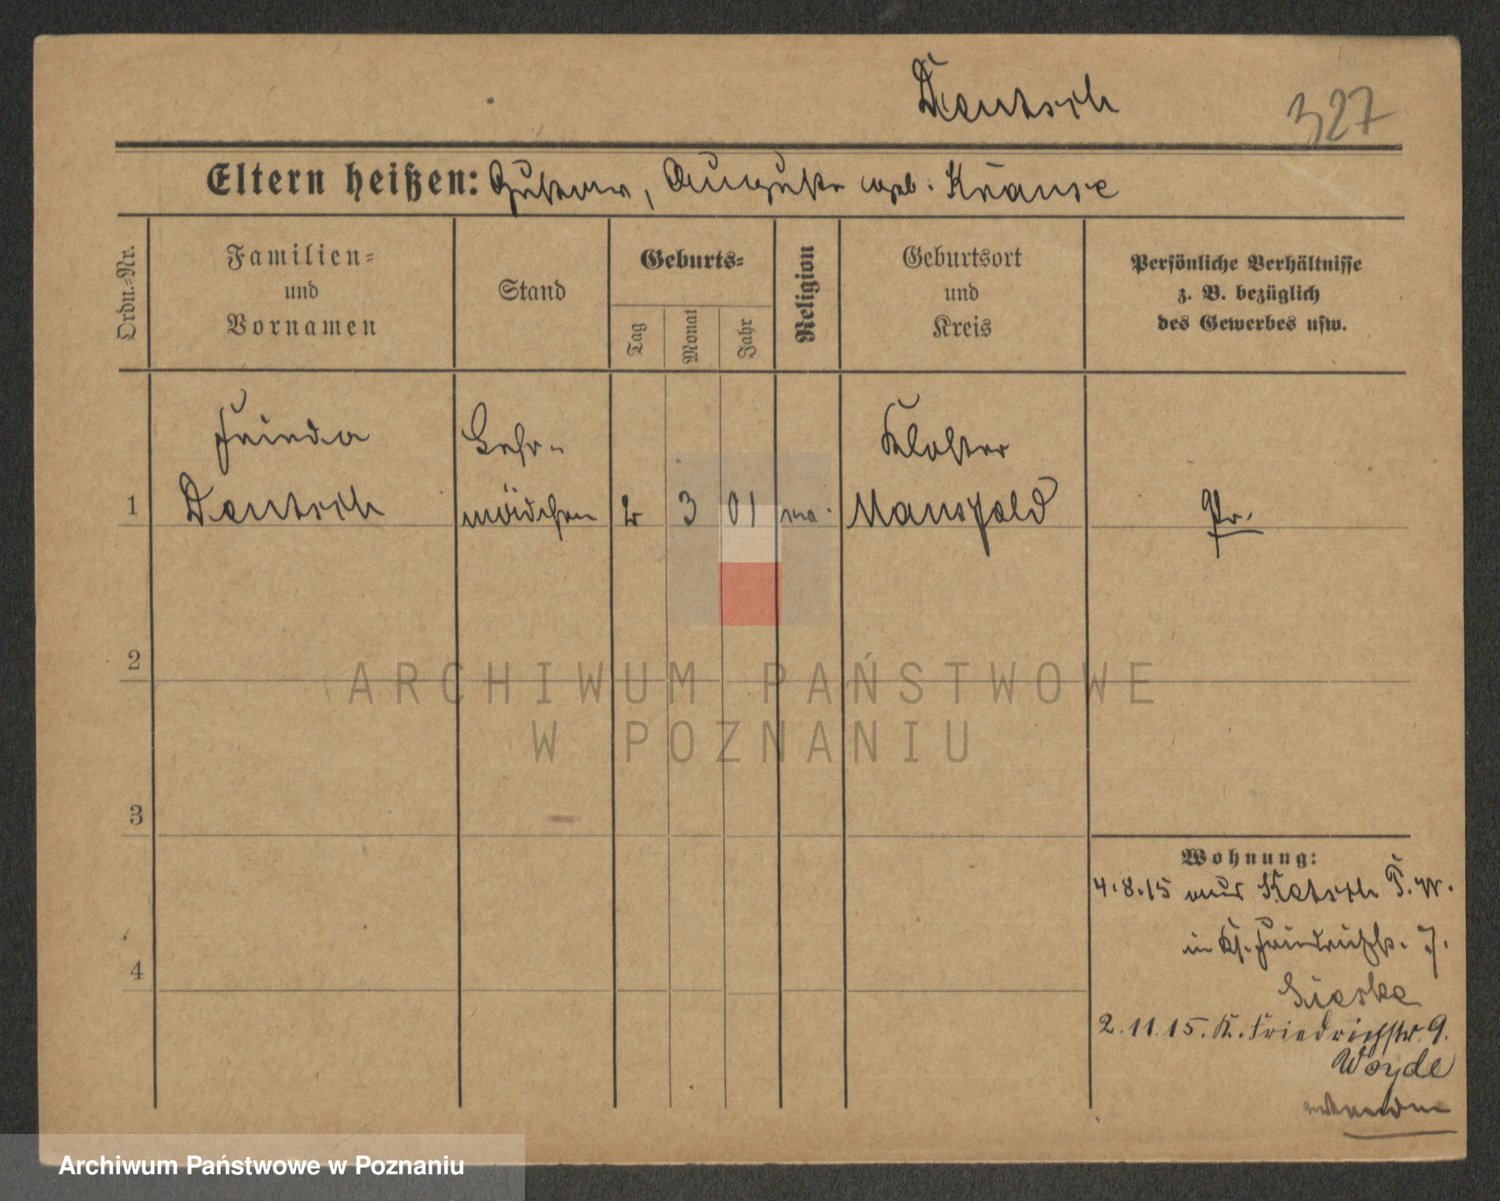 Deutsch
327
Eltern heißen: Gustav, Auguste geb. Krause
Ordn.-Nr.
Familien- und Vornamen
Stand
Geburts-
Tag
Monat
Jahr
Religion
Geburtsort und Kreis
Persönliche Verhältnisse z. B. bezüglich des Gewerbes usw.
Frieda
Lehr-
Kloster
1 Deutsch mädchen 2 3 01 Mansfeld Pr.
2
ARCHIWUM PAŃSTWOWE
W POZNANIU
3
4
Wohnung:
4.8.15 aus
in Ks. Friedrichstr. 7.
Lieske
2.11.15. K. Friedrichstr. 9.
Woyde
Archiwum Państwowe w Poznaniu